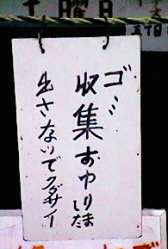 ゴミ
収集おわりました
出さないでクダサイ